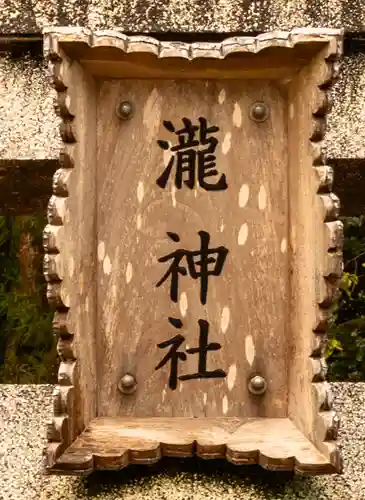 瀧神社